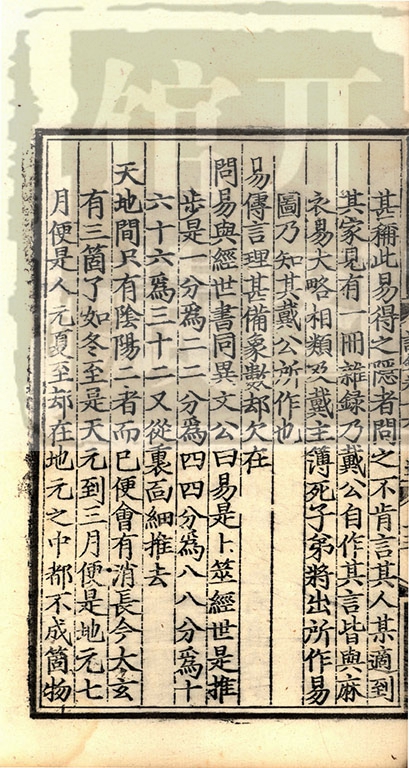 甚稱此易得之隱者問之不肯言其人某適到
其家見有一冊雜錄乃戴公自作其言皆與麻
衣易大略相類及戴主簿死子弟將出所作易
圖乃知其戴公所作也
易傳言理甚備象數却欠在
問易與經世書同異文公曰易是卜筮經世是推
步是一分為二二分為四四分為八八分為十
六十六為三十二又從裏面細推去
天地間只有陰陽二者而已便會有消長今太玄
有三箇了如冬至是天元到三月便是地元七
月便是人元夏至却在地元之中都不成箇物